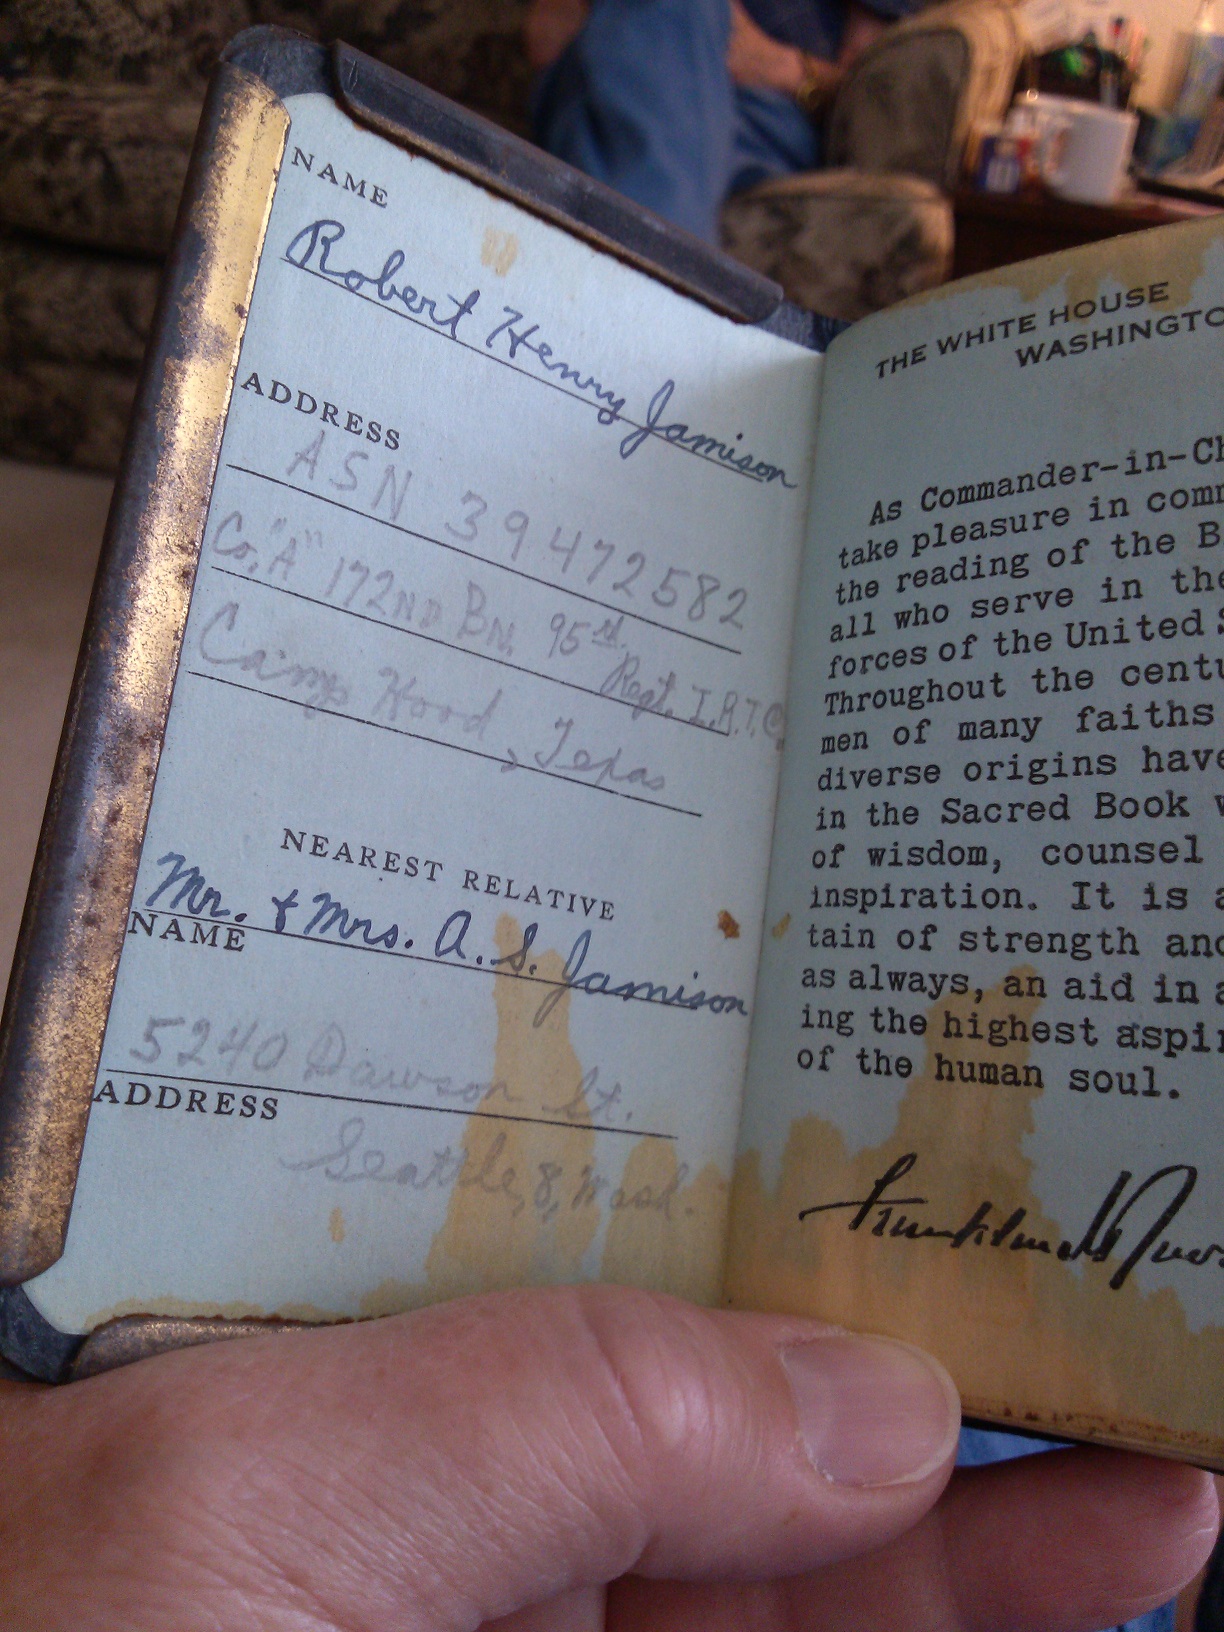 NAME
Robert Henry Jamison
ADDRESS
ASN 39472582
Co. "A" 172ND BN. 95th Regt. I.R.T.C.
Camp Hood, Texas
NEAREST RELATIVE
Mr. & Mrs. A. S. Jamison
NAME
5240 Dawson St.
ADDRESS
Seattle, 8, Wash.
THE WHITE HOUSE
WASHINGTO
As Commander-in-Ch
take pleasure in comm
the reading of the B
all who serve in the
forces of the United S
Throughout the centu
men of many faiths
diverse origins have
in the Sacred Book w
of wisdom, counsel
inspiration. It is a
tain of strength and
as always, an aid in a
ing the highest aspir
of the human soul.
Franklin D Roos